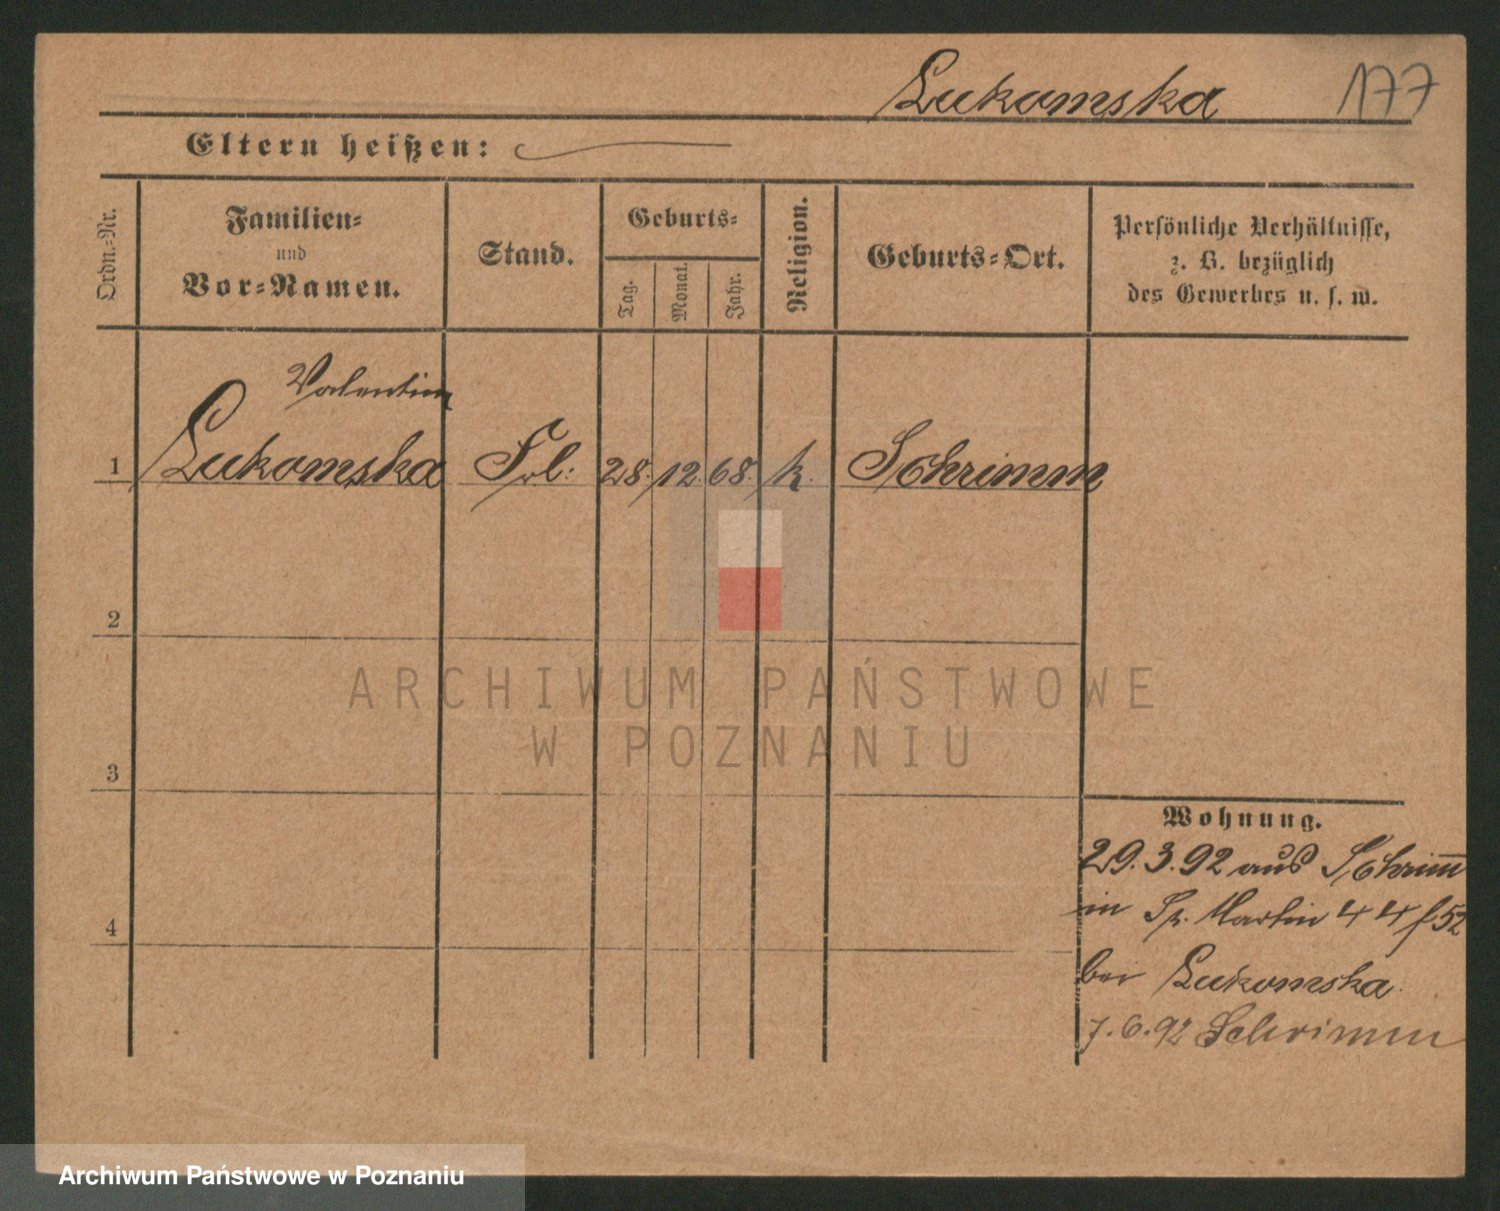 Lukomska 177
Eltern heißen:
Ordn.-Nr.
Familien-
und
Vor-Namen.
Stand.
Geburts-
Tag.
Monat.
Jahr.
Religion.
Geburts-Ort.
Persönliche Verhältnisse,
z. B. bezüglich
des Gewerbes u. s. w.
Valentin
1 Lukomska Frl: 28. 12. 68. k. Schrimm
2
ARCHIWUM PAŃSTWOWE
W POZNANIU
3
Wohnung.
29. 3. 92 aus Schrimm
in St. Martin 44 f 52
4
bei Lukomska.
7. 6. 92 Schrimm
Archiwum Państwowe w Poznaniu